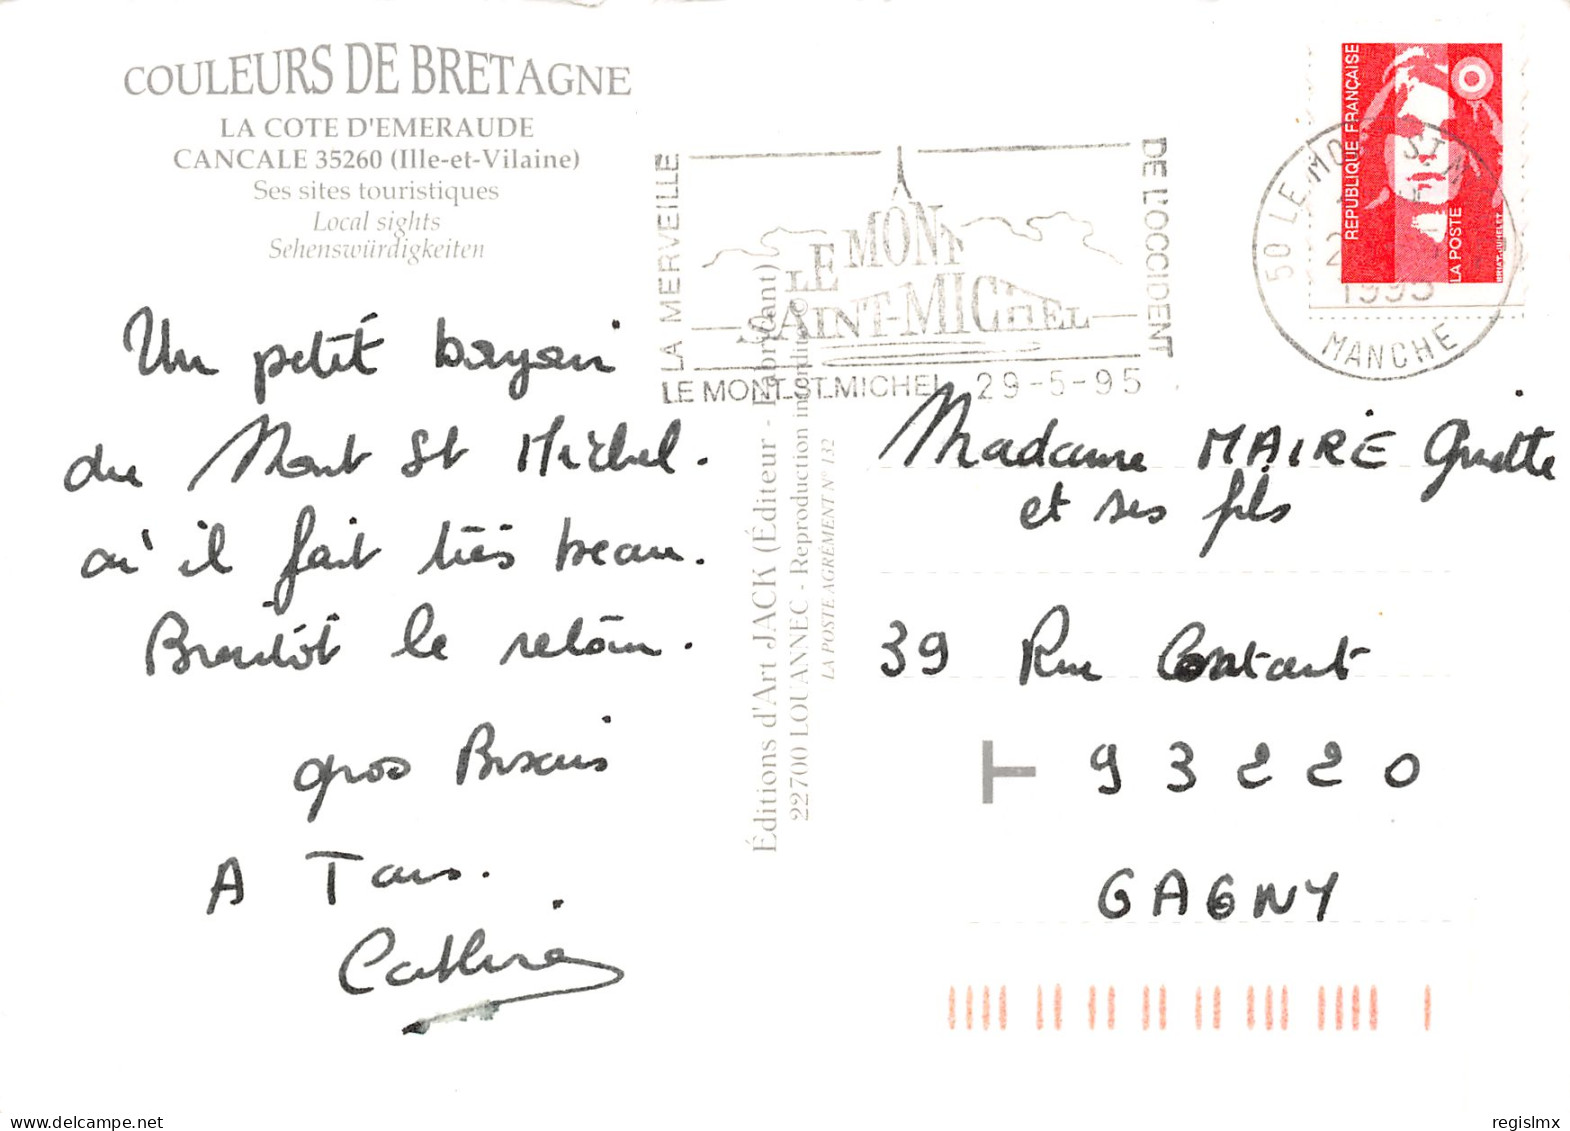 COULEURS DE BRETAGNE
LA COTE D'EMERAUDE
CANCALE 35260 (Ille-et-Vilaine)
Ses sites touristiques
Local sights
Sehenswürdigkeiten
Un petit
du Mont St Michel.
où il fait très beau.
Bientôt le retour.
gros Bisous
A Tous.
Catherine
Éditions d'Art JACK (Éditeur - Fabricant)
22700 LOUANNEC - Reproduction interdite
LA POSTE AGRÉMENT N° 132
LA MERVEILLE
DE L'OCCIDENT
LE MONT
SAINT-MICHEL
LE MONT ST MICHEL 29-5-95
RÉPUBLIQUE FRANÇAISE
LA POSTE
BRIAT-JUMELET
50 LE MONT ST M
1995
MANCHE
Madame MAIRE Ginette
et ses fils
39 Rue Contant
T 93220
GAGNY
regislmx